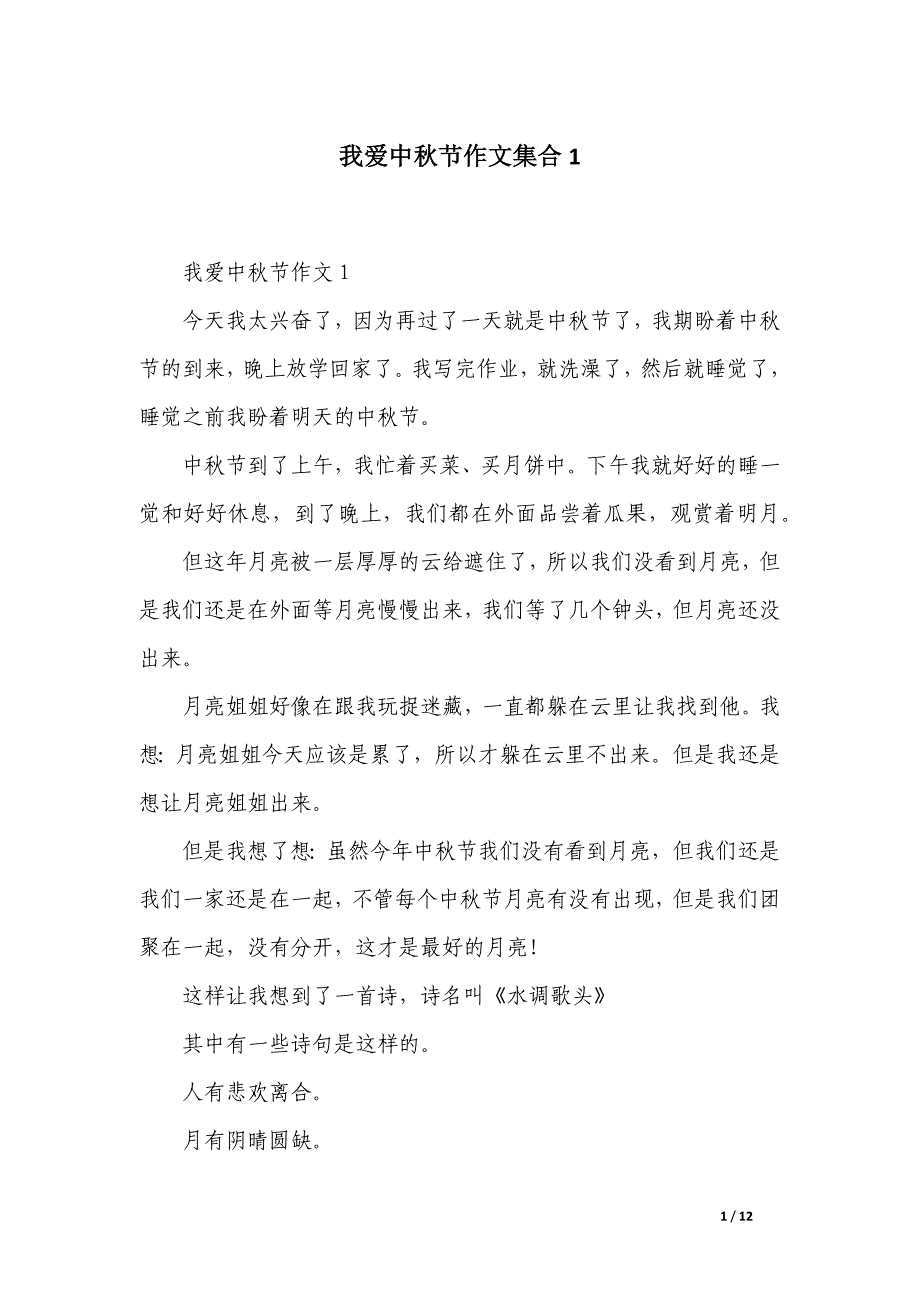 我爱中秋节作文集合 1
我爱中秋节作文 1
今天我太兴奋了，因为再过了一天就是中秋节了，我期盼着中秋
节的到来，晚上放学回家了。我写完作业，就洗澡了，然后就睡觉了，
睡觉之前我盼着明天的中秋节。
中秋节到了上午，我忙着买菜、买月饼中。下午我就好好的睡一
觉和好好休息，到了晚上，我们都在外面品尝着瓜果，观赏着明月。
但这年月亮被一层厚厚的云给遮住了，所以我们没看到月亮，但
是我们还是在外面等月亮慢慢出来，我们等了几个钟头，但月亮还没
出来。
月亮姐姐好像在跟我玩捉迷藏，一直都躲在云里让我找到他。我
想：月亮姐姐今天应该是累了，所以才躲在云里不出来。但是我还是
想让月亮姐姐出来。
但是我想了想：虽然今年中秋节我们没有看到月亮，但我们还是
我们一家还是在一起，不管每个中秋节月亮有没有出现，但是我们团
聚在一起，没有分开，这才是最好的月亮！
这样让我想到了一首诗，诗名叫《水调歌头》
其中有一些诗句是这样的。
人有悲欢离合。
月有阴晴圆缺。
1 / 12